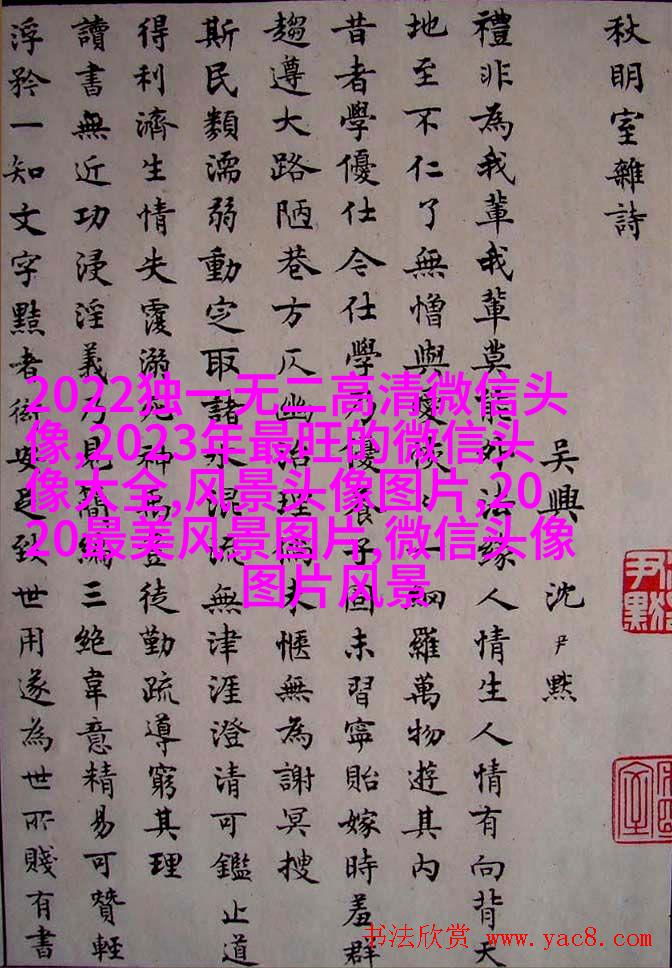 秋明室雜詩
吳興 沈尹默
禮非為我輩我輩莫能外法緣人情生人情有向背天
地至不仁了無憎與愛恢恢一網羅萬物遊其內
昔者學優仕今仕學乃優養子固未習寧貽嫁時羞群
趨遵大路陋巷方仄幽治理未愜無為謝冥搜
斯民類濡弱動定取諸水混流無津涯澄清可鑑止道
得利濟生情失覆溺死神禹豈徒勤疏導窮其理
讀書無近功浸淫義乃見簡編三絕韋意精易可贊輕
浮矜一知文字黠者衒安足致世用遂為世所賤有書
尹默
2022独一无二高清微信头
像,2023年最旺的微信头
像大全,风景头像图片,20
20最美风景图片,微信头像
图片风景
书法欣赏 www.yac8.com